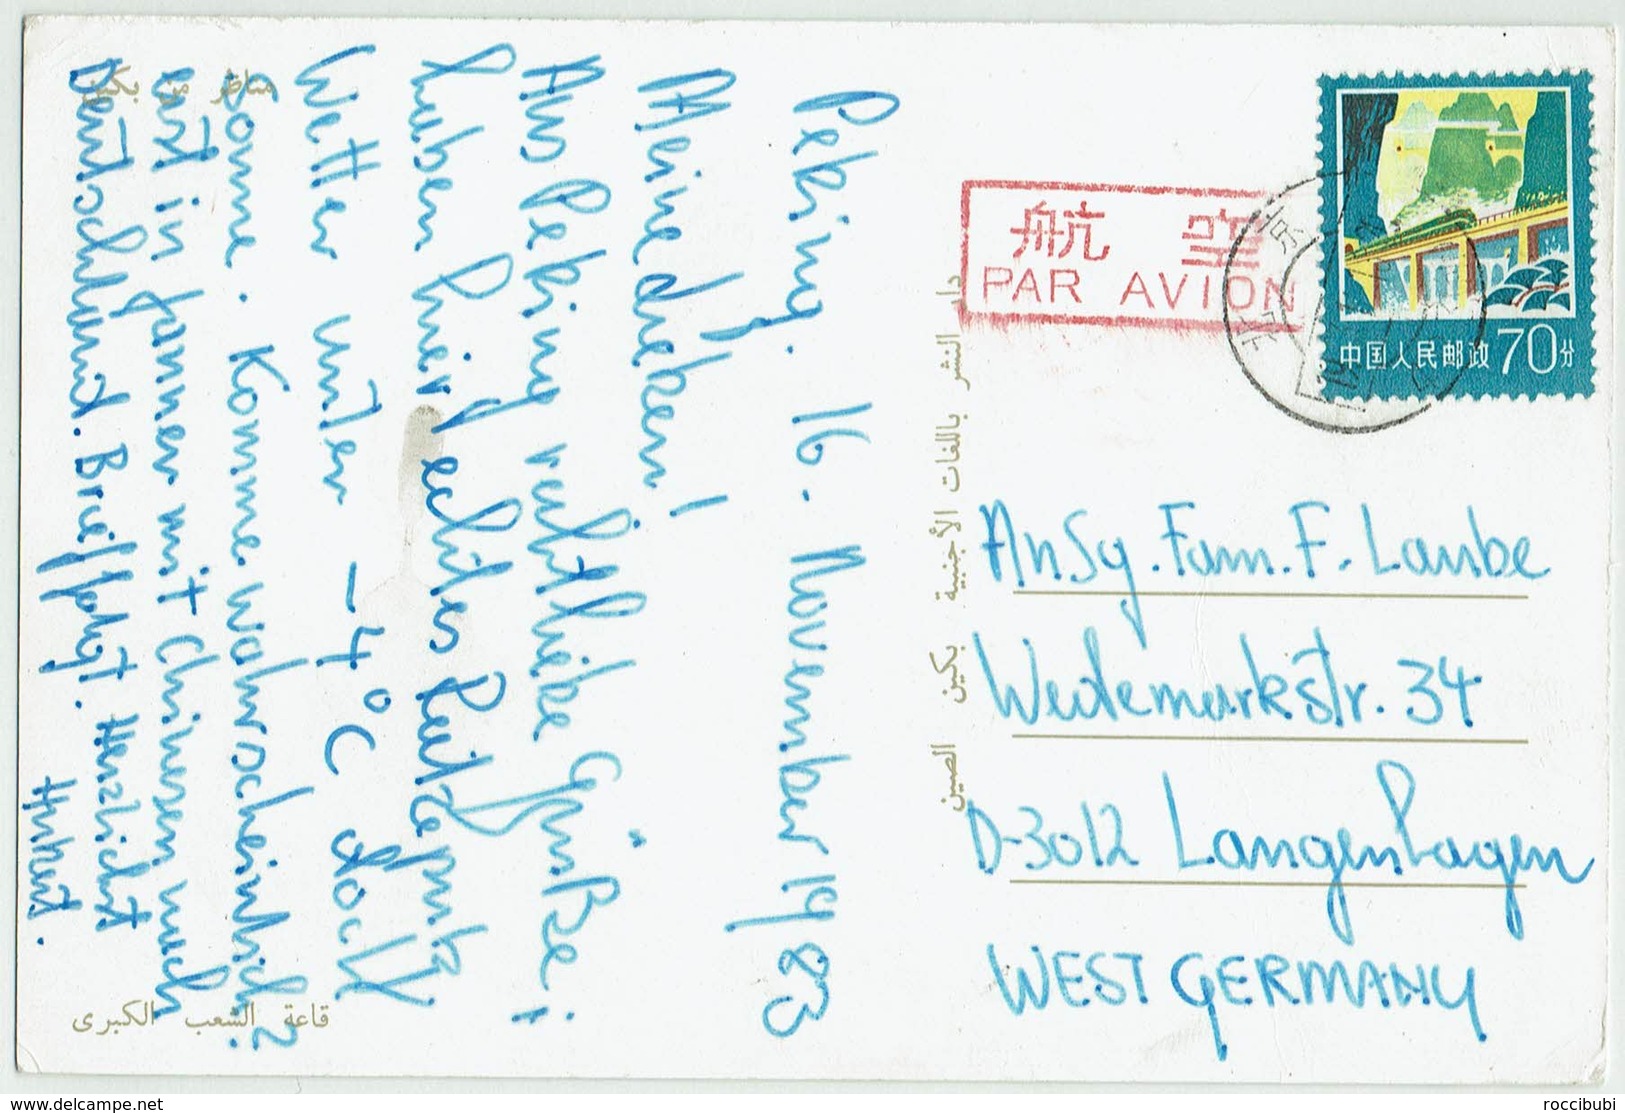 Peking. 16. November 1983
Meine Lieben!
Aus Peking recht liebe Grüße i
haben hier echtes Reitzeputz
Wetter unter -4°C doch
Sonne. Komme wahrscheinlich
erst in Jänner mit Chinesen nach
Deutschland. Brief folgt. Herzlichst
Hubert.
مناظر من بكين
قاعة الشعب الكبرى
دار النشر باللغات الأجنبية بكين الصين
航空
PAR AVION
中国人民邮政 70分
北京
An Sg. Fam. F. Laube
Wedemarkstr. 34
D-3012 Langenhagen
WEST GERMANY
www.delcampe.net
roccibubi